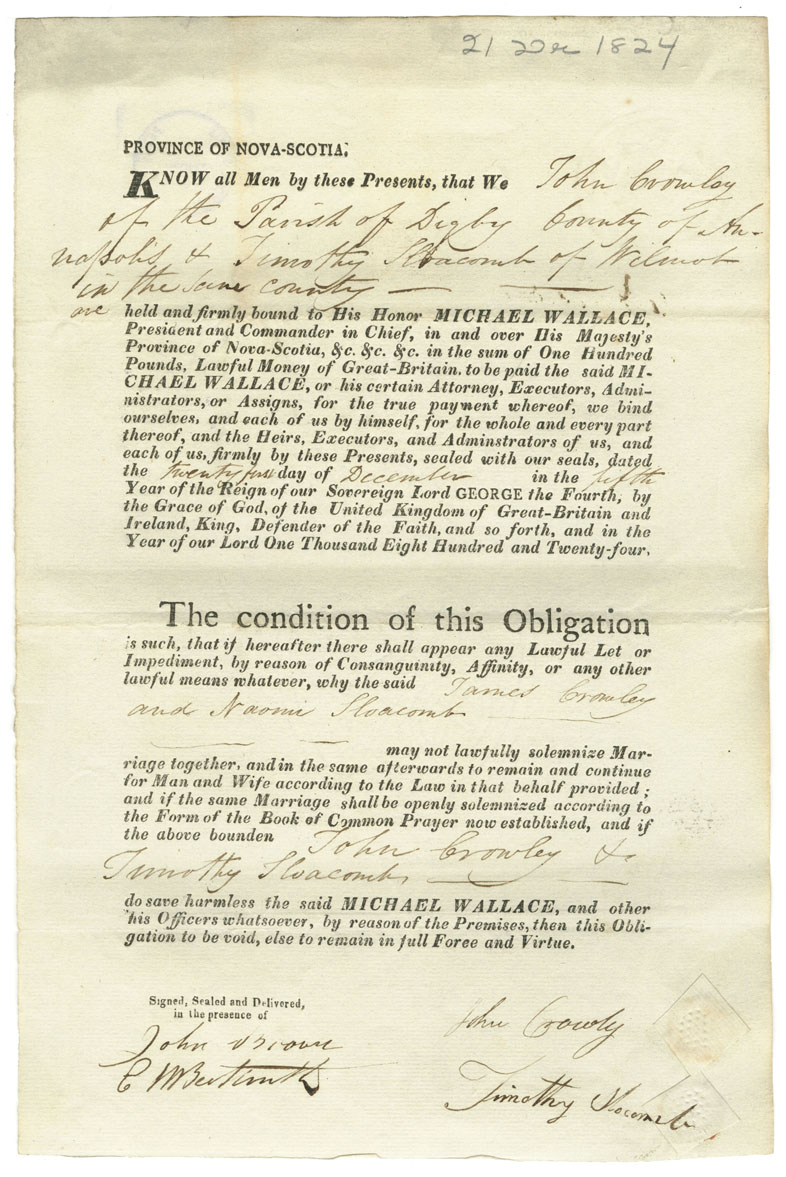 21 Dec 1824
PROVINCE OF NOVA-SCOTIA;
KNOW all Men by these Presents, that We John Crowley
of the Parish of Digby County of An-
napolis & Timothy Sloacomb of Wilmot
in the same county
are held and firmly bound to His Honor MICHAEL WALLACE,
President and Commander in Chief, in and over His Majesty's
Province of Nova-Scotia, &c. &c. &c. in the sum of One Hundred
Pounds, Lawful Money of Great-Britain, to be paid the said MI-
CHAEL WALLACE, or his certain Attorney, Executors, Admi-
nistrators, or Assigns, for the true payment whereof, we bind
ourselves, and each of us by himself, for the whole and every part
thereof, and the Heirs, Executors, and Adminstrators of us, and
each of us, firmly by these Presents, sealed with our seals, dated
the twenty first day of December in the fifth
Year of the Reign of our Sovereign Lord GEORGE the Fourth, by
the Grace of God, of the United Kingdom of Great-Britain and
Ireland, King, Defender of the Faith, and so forth, and in the
Year of our Lord One Thousand Eight Hundred and Twenty-four.
The condition of this Obligation
is such, that if hereafter there shall appear any Lawful Let or
Impediment, by reason of Consanguinity, Affinity, or any other
lawful means whatever, why the said James Crowley
and Naomi Sloacomb
may not lawfully solemnize Mar-
riage together, and in the same afterwards to remain and continue
for Man and Wife according to the Law in that behalf provided;
and if the same Marriage shall be openly solemnized according to
the Form of the Book of Common Prayer now established, and if
the above bounden John Crowley &
Timothy Sloacomb
do save harmless the said MICHAEL WALLACE, and other
his Officers whatsoever, by reason of the Premises, then this Obli-
gation to be void, else to remain in full Force and Virtue.
Signed, Sealed and Delivered,
in the presence of
John Crowly
John Brown
Timothy Slocomb